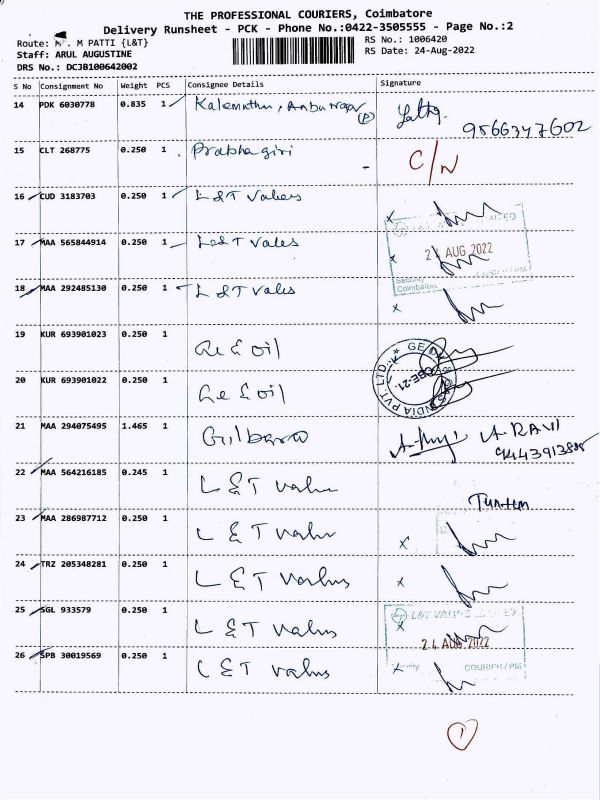 THE PROFESSIONAL COURIERS, Coimbatore
Delivery Runsheet - PCK - Phone No.:0422-3505555 - Page No.:2
Route: M PATTI {L&T}
RS No.: 1006420
Staff: ARUL AUGUSTINE
RS Date: 24-Aug-2022
DRS No.: DCJB100642002
S No Consignment No Weight PCS Consignee Details Signature
14 PDK 6030778 0.835 1
9566347602
15 CLT 268775 0.250 1 Prabhagiri - C/N
16 CUD 3183703 0.250 1 L&T Valves x
17 MAA 565844914 0.250 1 L&T Valves x
24 AUG 2022
Security
Coimbatore
18 MAA 292485130 0.250 1 L&T Valves x
19 KUR 693901023 0.250 1 Ge & oil
20 KUR 693901022 0.250 1 Ge & oil
21 MAA 294075495 1.465 1 Gilbarco A RAVI
22 MAA 564216185 0.245 1 L & T Valve
23 MAA 286987712 0.250 1 L & T Valve x
24 TRZ 205348281 0.250 1 L & T Valves x
25 SGL 933579 0.250 1 L & T Valves x
L&T VALVES LIMITED
24 AUG 2022
Security COURIER / PM
26 SPB 30019569 0.250 1 L & T Valves x
1